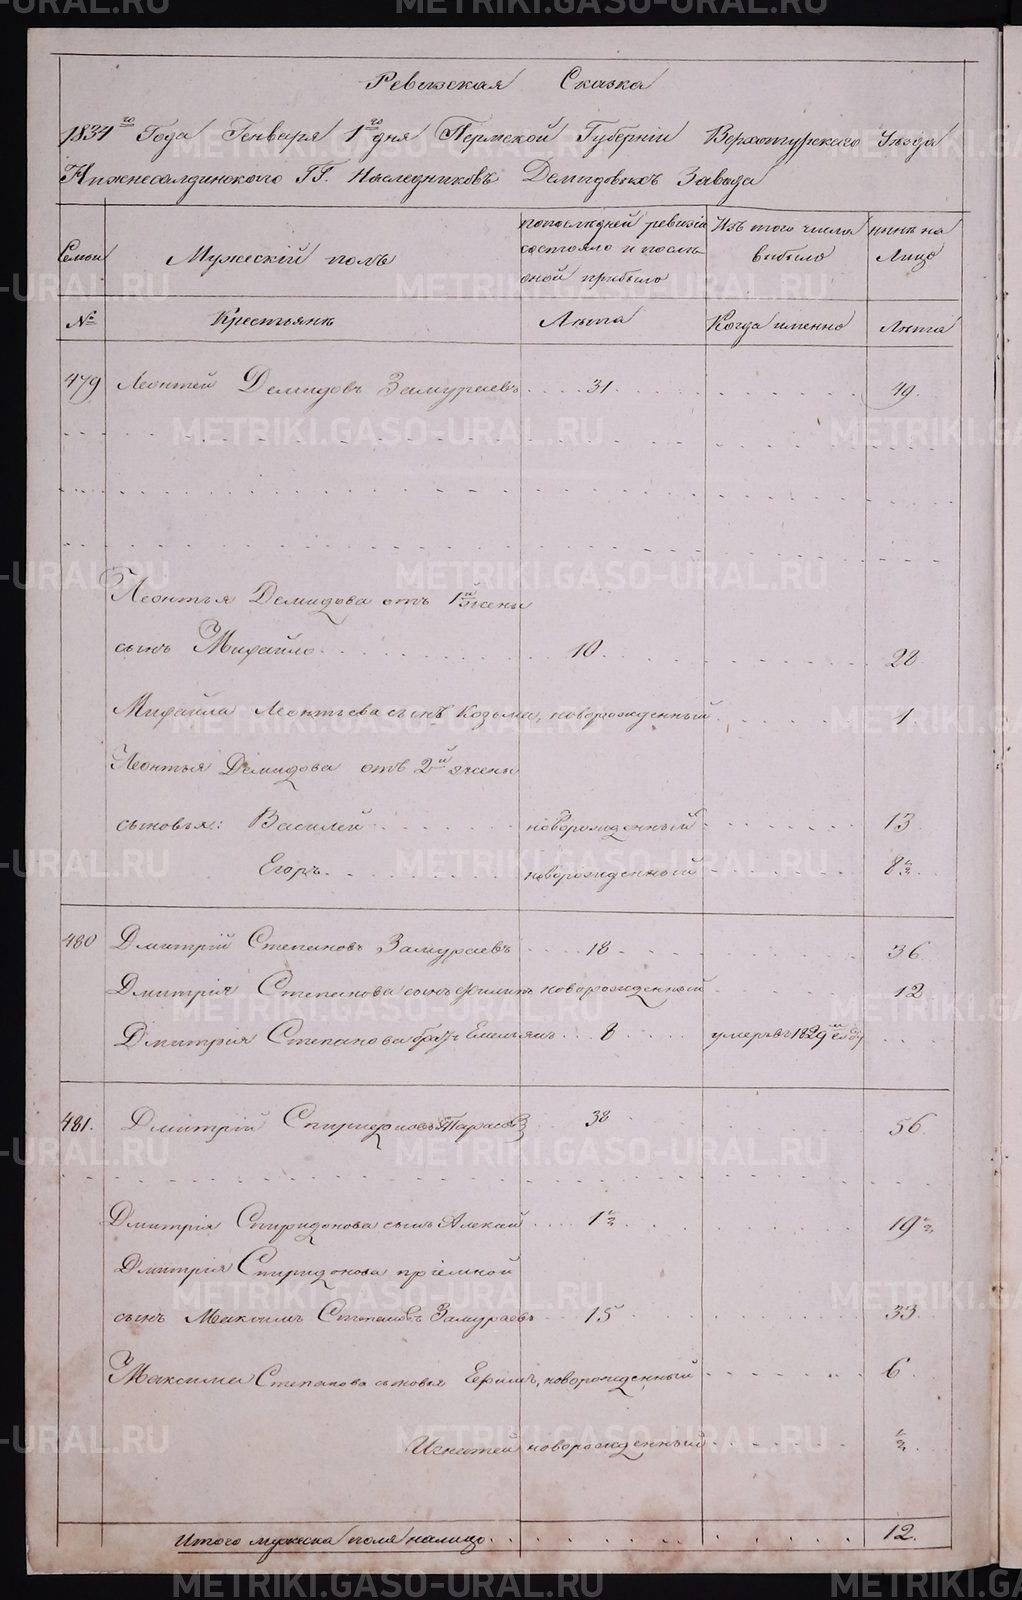 Ревизская Сказка
1834го Года Генваря 1го дня Пермской Губернiи Верхотурскаго Уезда
Нижнесалдинскаго ГГ. Наследниковъ Демидовыхъ Завода
Семьи
Мужескiй полъ
по последней ревизiи состояло и после оной прибыло
Изъ того числа выбыло
ныне на Лицо
№
Крестьянъ
Лета
Когда именно
Лета
479 Леонтей Демидовъ Замураевъ 31. 49.
Леонтья Демидова отъ 1й жены
сынъ Михайло 10 28
Михайла Леонтьева сынъ Козьма, новорожденный 1
Леонтья Демидова отъ 2й жены
сыновья: Василей новорожденный 13
Егоръ новорожденный 8½
480 Дмитрiй Степановъ Замураевъ 18 36
Дмитрiя Степанова сынъ Филипъ новорожденный 12
Дмитрiя Степанова братъ Емельянъ 8 умеръ въ 1829м году
481. Дмитрiй Спиридоновъ Тарасовъ 38 56
Дмитрiя Спиридонова сынъ Алексей 1½ 19½
Дмитрiя Спиридонова прiемной
сынъ Максимъ Степановъ Замураевъ 15 33
Максима Степанова сыновья Ефимъ, новорожденный 6
Игнатей новорожденный ½
Итого мужеска пола налицо 12.
METRIKI.GASO-URAL.RU